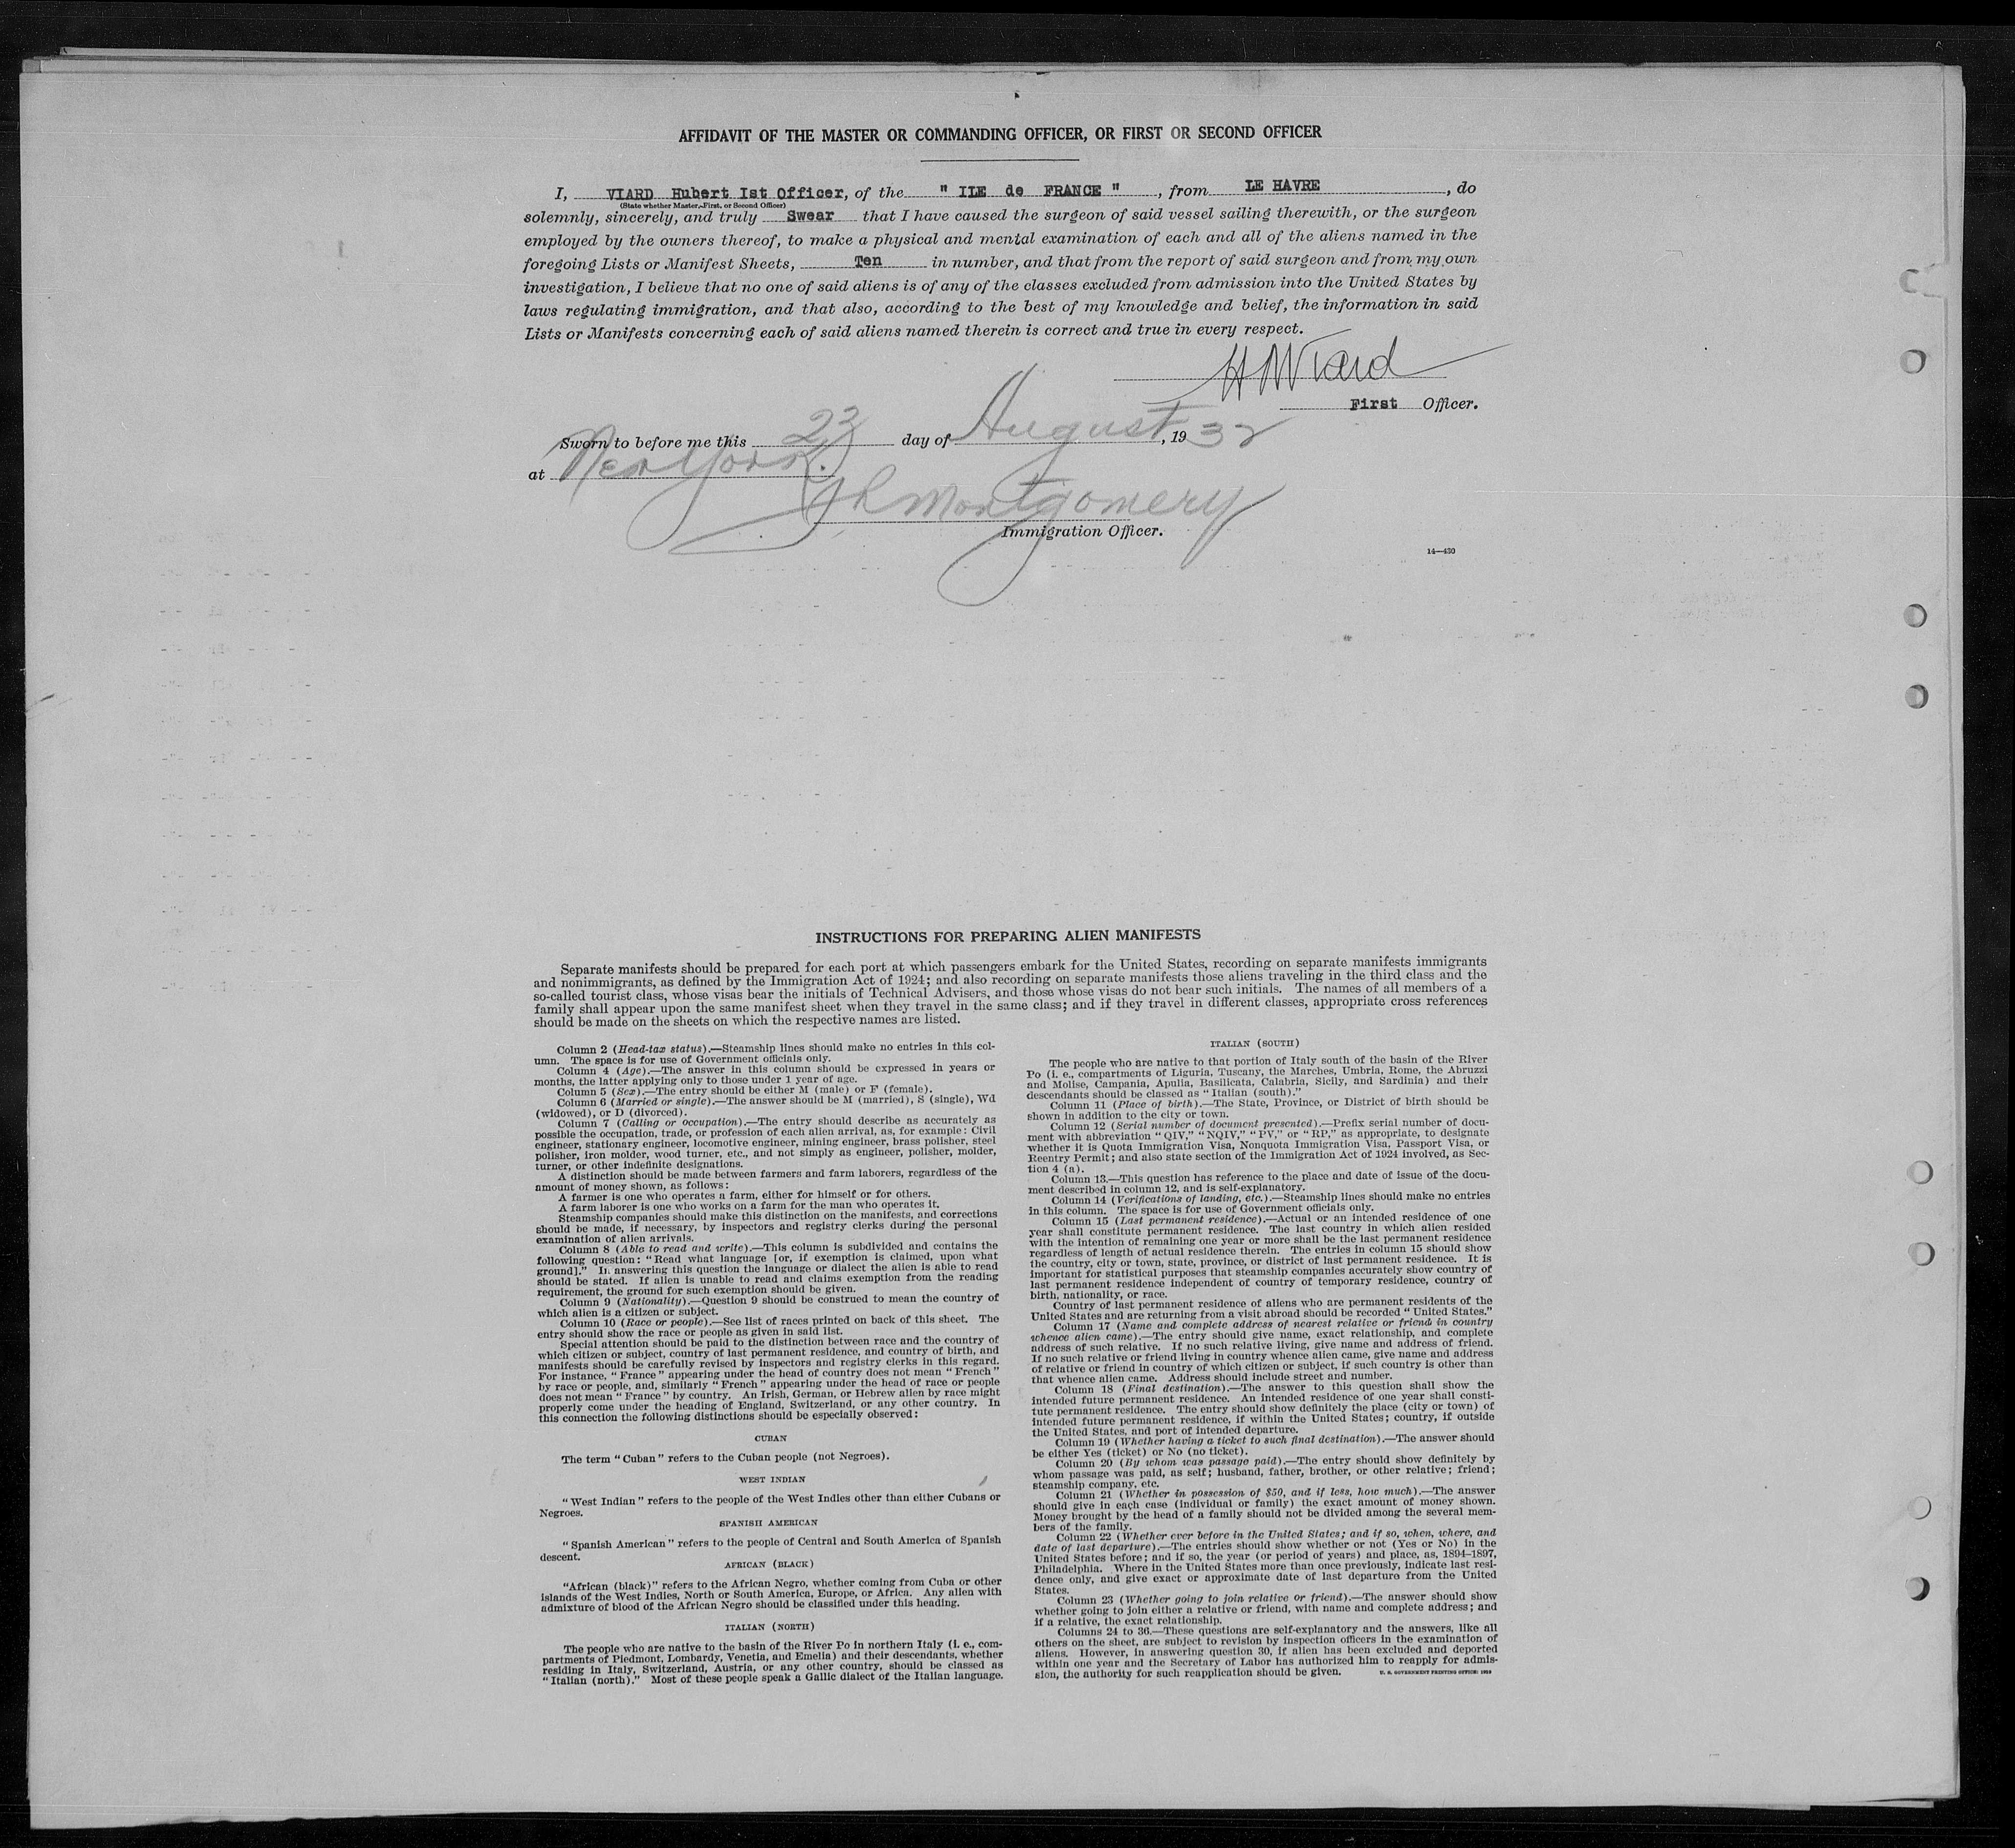 AFFIDAVIT OF THE MASTER OR COMMANDING OFFICER, OR FIRST OR SECOND OFFICER
I, VIARD Hubert Ist Officer, of the " ILE de FRANCE ", from LE HAVRE, do
(State whether Master, First, or Second Officer)
solemnly, sincerely, and truly Swear that I have caused the surgeon of said vessel sailing therewith, or the surgeon
employed by the owners thereof, to make a physical and mental examination of each and all of the aliens named in the
foregoing Lists or Manifest Sheets, Ten in number, and that from the report of said surgeon and from my own
investigation, I believe that no one of said aliens is of any of the classes excluded from admission into the United States by
laws regulating immigration, and that also, according to the best of my knowledge and belief, the information in said
Lists or Manifests concerning each of said aliens named therein is correct and true in every respect.
Viard
First Officer.
Sworn to before me this 23 day of August, 1932
at New York.
Montgomery
Immigration Officer.
14—430
INSTRUCTIONS FOR PREPARING ALIEN MANIFESTS
Separate manifests should be prepared for each port at which passengers embark for the United States, recording on separate manifests immigrants
and nonimmigrants, as defined by the Immigration Act of 1924; and also recording on separate manifests those aliens traveling in the third class and the
so-called tourist class, whose visas bear the initials of Technical Advisers, and those whose visas do not bear such initials. The names of all members of a
family shall appear upon the same manifest sheet when they travel in the same class; and if they travel in different classes, appropriate cross references
should be made on the sheets on which the respective names are listed.
Column 2 (Head-tax status).—Steamship lines should make no entries in this col-
umn. The space is for use of Government officials only.
Column 4 (Age).—The answer in this column should be expressed in years or
months, the latter applying only to those under 1 year of age.
Column 5 (Sex).—The entry should be either M (male) or F (female).
Column 6 (Married or single).—The answer should be M (married), S (single), Wd
(widowed), or D (divorced).
Column 7 (Calling or occupation).—The entry should describe as accurately as
possible the occupation, trade, or profession of each alien arrival, as, for example: Civil
engineer, stationary engineer, locomotive engineer, mining engineer, brass polisher, steel
polisher, iron molder, wood turner, etc., and not simply as engineer, polisher, molder,
turner, or other indefinite designations.
A distinction should be made between farmers and farm laborers, regardless of the
amount of money shown, as follows:
A farmer is one who operates a farm, either for himself or for others.
A farm laborer is one who works on a farm for the man who operates it.
Steamship companies should make this distinction on the manifests, and corrections
should be made, if necessary, by inspectors and registry clerks during the personal
examination of alien arrivals.
Column 8 (Able to read and write).—This column is subdivided and contains the
following question: "Read what language [or, if exemption is claimed, upon what
ground]." In answering this question the language or dialect the alien is able to read
should be stated. If alien is unable to read and claims exemption from the reading
requirement, the ground for such exemption should be given.
Column 9 (Nationality).—Question 9 should be construed to mean the country of
which alien is a citizen or subject.
Column 10 (Race or people).—See list of races printed on back of this sheet. The
entry should show the race or people as given in said list.
Special attention should be paid to the distinction between race and the country of
which citizen or subject, country of last permanent residence, and country of birth, and
manifests should be carefully revised by inspectors and registry clerks in this regard.
For instance, "France" appearing under the head of country does not mean "French"
by race or people, and, similarly "French" appearing under the head of race or people
does not mean "France" by country. An Irish, German, or Hebrew alien by race might
properly come under the heading of England, Switzerland, or any other country. In
this connection the following distinctions should be especially observed:
CUBAN
The term "Cuban" refers to the Cuban people (not Negroes).
WEST INDIAN
"West Indian" refers to the people of the West Indies other than either Cubans or
Negroes.
SPANISH AMERICAN
"Spanish American" refers to the people of Central and South America of Spanish
descent.
AFRICAN (BLACK)
"African (black)" refers to the African Negro, whether coming from Cuba or other
islands of the West Indies, North or South America, Europe, or Africa. Any alien with
admixture of blood of the African Negro should be classified under this heading.
ITALIAN (NORTH)
The people who are native to the basin of the River Po in northern Italy (i. e., com-
partments of Piedmont, Lombardy, Venetia, and Emelia) and their descendants, whether
residing in Italy, Switzerland, Austria, or any other country, should be classed as
"Italian (north)." Most of these people speak a Gallic dialect of the Italian language.
ITALIAN (SOUTH)
The people who are native to that portion of Italy south of the basin of the River
Po (i. e., compartments of Liguria, Tuscany, the Marches, Umbria, Rome, the Abruzzi
and Molise, Campania, Apulia, Basilicata, Calabria, Sicily, and Sardinia) and their
descendants should be classed as "Italian (south)."
Column 11 (Place of birth).—The State, Province, or District of birth should be
shown in addition to the city or town.
Column 12 (Serial number of document presented).—Prefix serial number of docu-
ment with abbreviation "QIV," "NQIV," "PV," or "RP," as appropriate, to designate
whether it is Quota Immigration Visa, Nonquota Immigration Visa, Passport Visa, or
Reentry Permit; and also state section of the Immigration Act of 1924 involved, as Sec-
tion 4 (a).
Column 13.—This question has reference to the place and date of issue of the docu-
ment described in column 12, and is self-explanatory.
Column 14 (Verifications of landing, etc.).—Steamship lines should make no entries
in this column. The space is for use of Government officials only.
Column 15 (Last permanent residence).—Actual or an intended residence of one
year shall constitute permanent residence. The last country in which alien resided
with the intention of remaining one year or more shall be the last permanent residence
regardless of length of actual residence therein. The entries in column 15 should show
the country, city or town, state, province, or district of last permanent residence. It is
important for statistical purposes that steamship companies accurately show country of
last permanent residence independent of country of temporary residence, country of
birth, nationality, or race.
Country of last permanent residence of aliens who are permanent residents of the
United States and are returning from a visit abroad should be recorded "United States."
Column 17 (Name and complete address of nearest relative or friend in country
whence alien came).—The entry should give name, exact relationship, and complete
address of such relative. If no such relative living, give name and address of friend.
If no such relative or friend living in country whence alien came, give name and address
of relative or friend in country of which citizen or subject, if such country is other than
that whence alien came. Address should include street and number.
Column 18 (Final destination).—The answer to this question shall show the
intended future permanent residence. An intended residence of one year shall consti-
tute permanent residence. The entry should show definitely the place (city or town) of
intended future permanent residence, if within the United States; country, if outside
the United States, and port of intended departure.
Column 19 (Whether having a ticket to such final destination).—The answer should
be either Yes (ticket) or No (no ticket).
Column 20 (By whom was passage paid).—The entry should show definitely by
whom passage was paid, as self; husband, father, brother, or other relative; friend;
steamship company, etc.
Column 21 (Whether in possession of $50, and if less, how much).—The answer
should give in each case (individual or family) the exact amount of money shown.
Money brought by the head of a family should not be divided among the several mem-
bers of the family.
Column 22 (Whether ever before in the United States; and if so, when, where, and
date of last departure).—The entries should show whether or not (Yes or No) in the
United States before; and if so, the year (or period of years) and place, as, 1894–1897,
Philadelphia. Where in the United States more than once previously, indicate last resi-
dence only, and give exact or approximate date of last departure from the United
States.
Column 23 (Whether going to join relative or friend).—The answer should show
whether going to join either a relative or friend, with name and complete address; and
if a relative, the exact relationship.
Columns 24 to 36.—These questions are self-explanatory and the answers, like all
others on the sheet, are subject to revision by inspection officers in the examination of
aliens. However, in answering question 30, if alien has been excluded and deported
within one year and the Secretary of Labor has authorized him to reapply for admis-
sion, the authority for such reapplication should be given. U. S. GOVERNMENT PRINTING OFFICE: